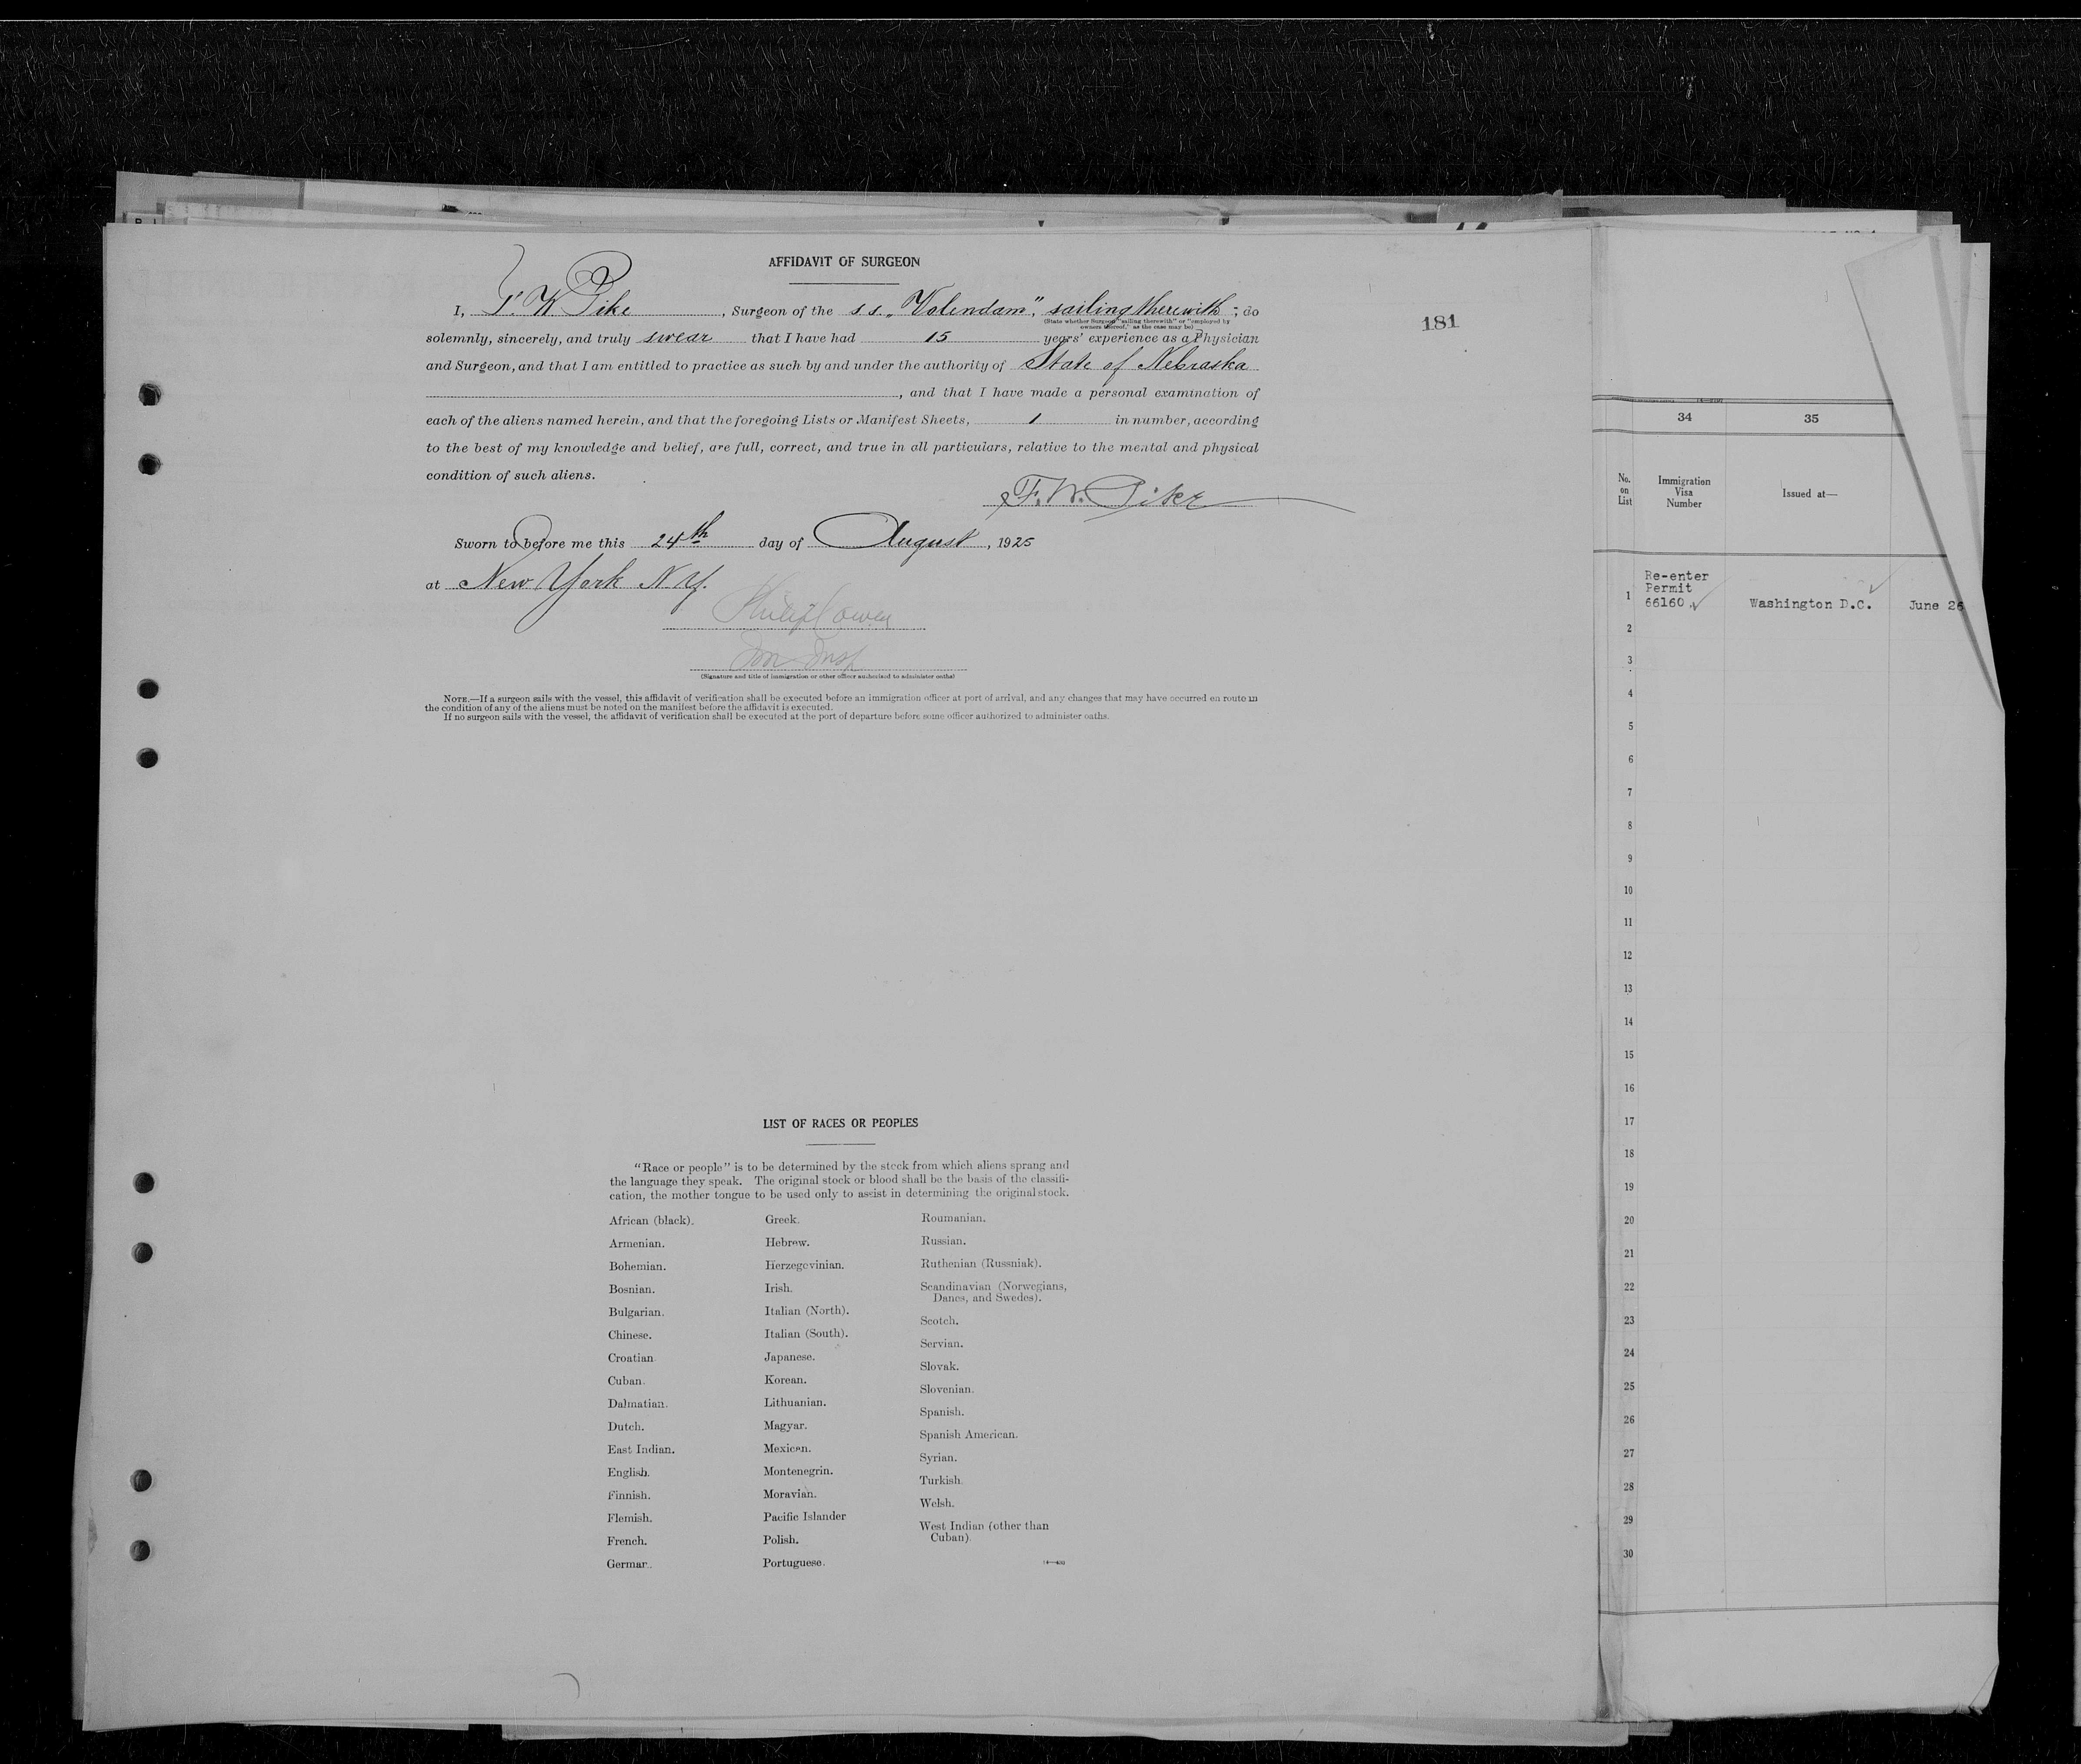 AFFIDAVIT OF SURGEON
I, F. W. Pike, Surgeon of the s.s. „Volendam", sailing therewith; do
(State whether Surgeon "sailing therewith" or "employed by
owners thereof," as the case may be)
solemnly, sincerely, and truly swear that I have had 15 years' experience as a Physician
and Surgeon, and that I am entitled to practice as such by and under the authority of State of Nebraska
, and that I have made a personal examination of
each of the aliens named herein, and that the foregoing Lists or Manifest Sheets, 1 in number, according
to the best of my knowledge and belief, are full, correct, and true in all particulars, relative to the mental and physical
condition of such aliens.
F. W. Pike
Sworn to before me this 24th day of August, 1925
at New York N.Y.
Philip Cowen
Imm Insp
(Signature and title of immigration or other officer authorized to administer oaths)
NOTE.—If a surgeon sails with the vessel, this affidavit of verification shall be executed before an immigration officer at port of arrival, and any changes that may have occurred en route in
the condition of any of the aliens must be noted on the manifest before the affidavit is executed.
If no surgeon sails with the vessel, the affidavit of verification shall be executed at the port of departure before some officer authorized to administer oaths.
181
LIST OF RACES OR PEOPLES
"Race or people" is to be determined by the stock from which aliens sprang and
the language they speak. The original stock or blood shall be the basis of the classifi-
cation, the mother tongue to be used only to assist in determining the original stock.
African (black).
Armenian.
Bohemian.
Bosnian.
Bulgarian.
Chinese.
Croatian
Cuban.
Dalmatian.
Dutch.
East Indian.
English.
Finnish.
Flemish.
French.
German.
Greek.
Hebrew.
Herzegovinian.
Irish.
Italian (North).
Italian (South).
Japanese.
Korean.
Lithuanian.
Magyar.
Mexican.
Montenegrin.
Moravian.
Pacific Islander
Polish.
Portuguese.
Roumanian.
Russian.
Ruthenian (Russniak).
Scandinavian (Norwegians,
Danes, and Swedes).
Scotch.
Servian.
Slovak.
Slovenian.
Spanish.
Spanish American.
Syrian.
Turkish.
Welsh.
West Indian (other than
Cuban).
34 35
No.
on
List
Immigration
Visa
Number
Issued at—
Re-enter
Permit
1 66160 Washington D.C. June 26
2
3
4
5
6
7
8
9
10
11
12
13
14
15
16
17
18
19
20
21
22
23
24
25
26
27
28
29
30